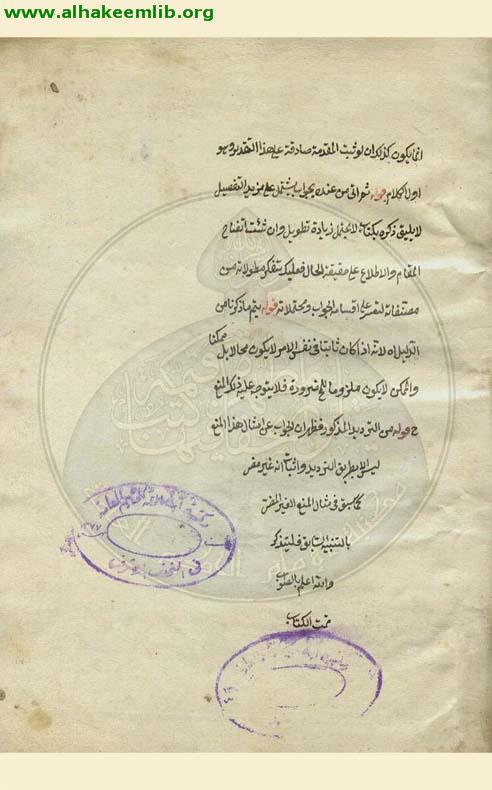 www.alhakeemlib.org
انما يكون كذلك ان لو ثبت المقدمة صادقة على هذا التقدير وهو
اول الكلام قوله ثم اتى من عنده بجواب يشتمل على مزيد التفصيل
لا يليق ذكره بكتاب لا يحتمل زيادة تطويل وان شئت انفتاح
المقام والاطلاع على حقيقة الحال فعليك بتفكر مطولاته من
مصنفاته لتعثر على اقسام الجواب ومحتملاته قوله يتم ما ذكرنا من
الدليل اه لانه اذا كان ثابتا في نفس الامر لا يكون محالا بل ممكنا
والممكن لا يكون ملزوما للمحال ضرورة فلا يتوجه عليه ذلك المنع
ح قوله من الترديد المذكور فظهر ان الجواب عن امثال هذا المنع
ليس الا بطريق الترديد واثبات انه غير مضر
كما سبق في مثال المنع الغير المضر
بالتنبيه السابق فليتذكر
والله اعلم بالصواب
تمت الكتاب
مكتبة العامة
في النجف الاشرف